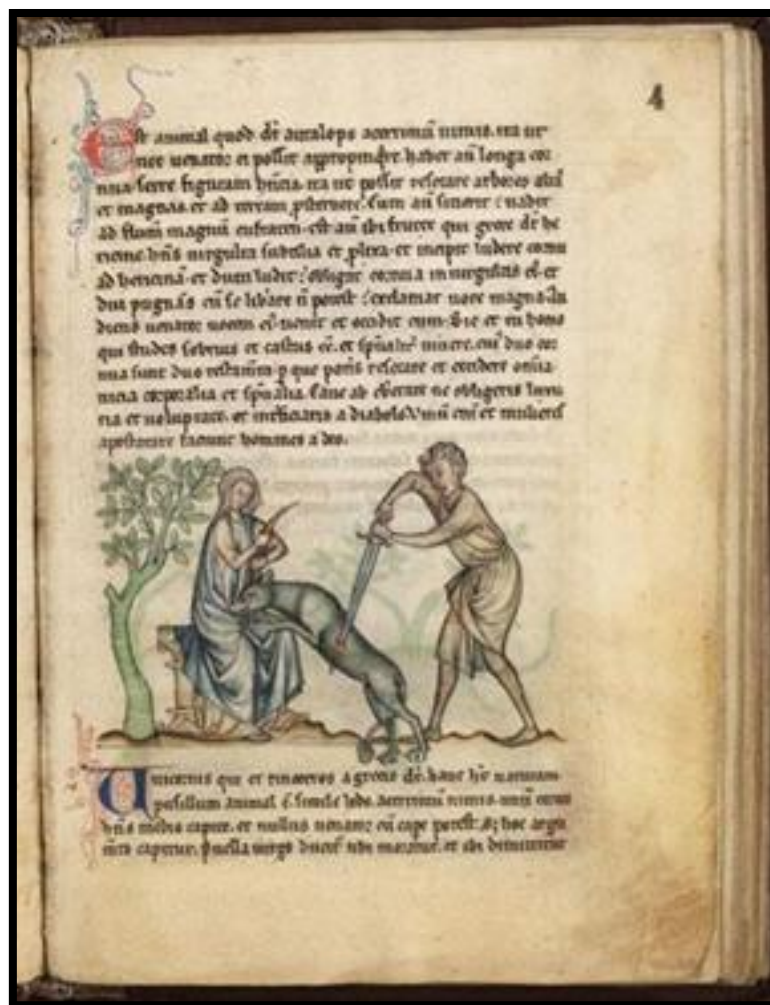 4
Est animal quod dr antalops acerrimū nimis. ita ut
nec uenator ei possit appropinqre. habet aū longa cor
nua serre figuram hncia. ita ut possit resecare arbores altas
et magnas et ad terram psternere. Cum aū sitierit uadit
ad flumē magnū eufraten. est aū ibi frutex qui grece dr he
ricine. hns uirgulta subtilia et plixa. et incipit ludere cornu
ad hericinā. et dum ludit obligat cornua in uirgultis ei. et
diu pugnās cū se libare n̄ possit exclamat uoce magna. Au
diens uenator uocem ei. uenit et occidit eum. Sic et tu homo
qui studes sobrius et castus ēē. et spualit uiuere. cui duo cor
nua sunt duo testamēta. p que poteris resecare et excidere omia
uicia corporalia et spualia. Caue ab ebrietate ne obligeris luxu
ria et uoluptate. et inficiaris a diabolo. Vinū eni et mulieres
apostatare faciunt homines a deo.
Unicornis qui et rinoceros a grecis dr. hanc ht naturam.
pusillum animal ē. simile hedo. acerrimū nimis. unū cornu
hns medio capite. et nullus uenator eū cape potest. S; hoc argu
mto capitur. Puella uirgo ducit ubi morat. et ibi dimittitur